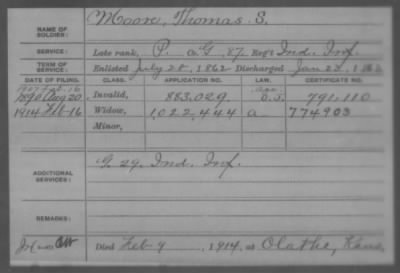 NAME OF SOLDIER: Moore, Thomas S.
SERVICE: Late rank, P. Co G, 87 Reg't Ind. Inf.
TERM OF SERVICE: Enlisted July 28, 1862 Discharged Jan 23, 1863
DATE OF FILING. CLASS. APPLICATION NO. LAW. CERTIFICATE NO.
1907 Feb. 16
1890 Aug 20 Invalid, 883.029. 791.110
1914 Feb 16 Widow, 1.022.444 a 774903
Minor,
ADDITIONAL SERVICES: G 29. Ind. Inf.
REMARKS:
Died Feb 9, 1914, at Olathe, Kans.